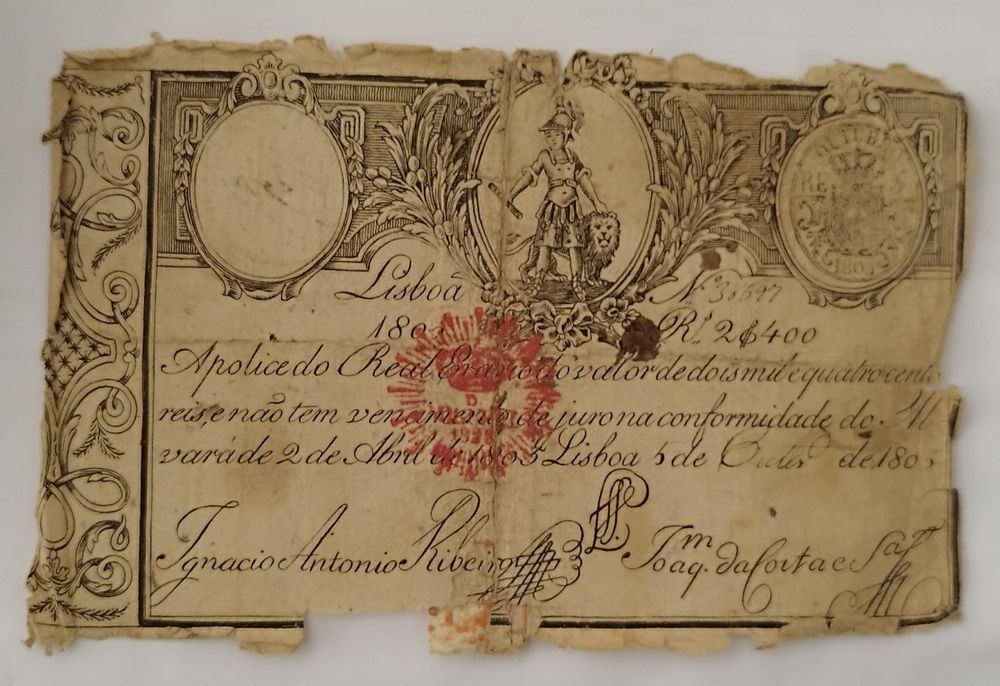 Lisboa Nº 30697
180 Rs. 2$400
Apolice do Real Erario do valor de dois mil e quatro cento
reis, e não tem vencimento de juro na conformidade do Al
vará de 2 de Abril de 1805 Lisboa 5 de de 1805
Ignacio Antonio Ribeiro Joaqm. da Costa e Sa